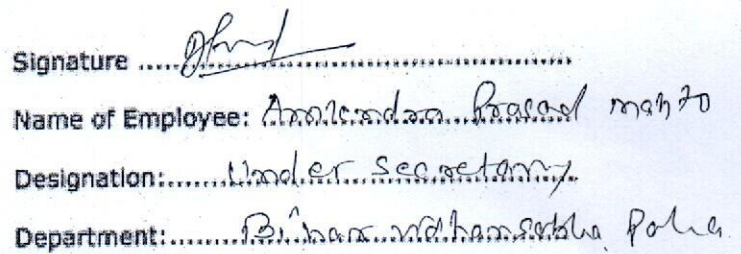 Signature ..........
Name of Employee: Amrendra Prasad mahto
Designation:..... Under Secretary
Department:....... Bihar vidhansabha, Patna